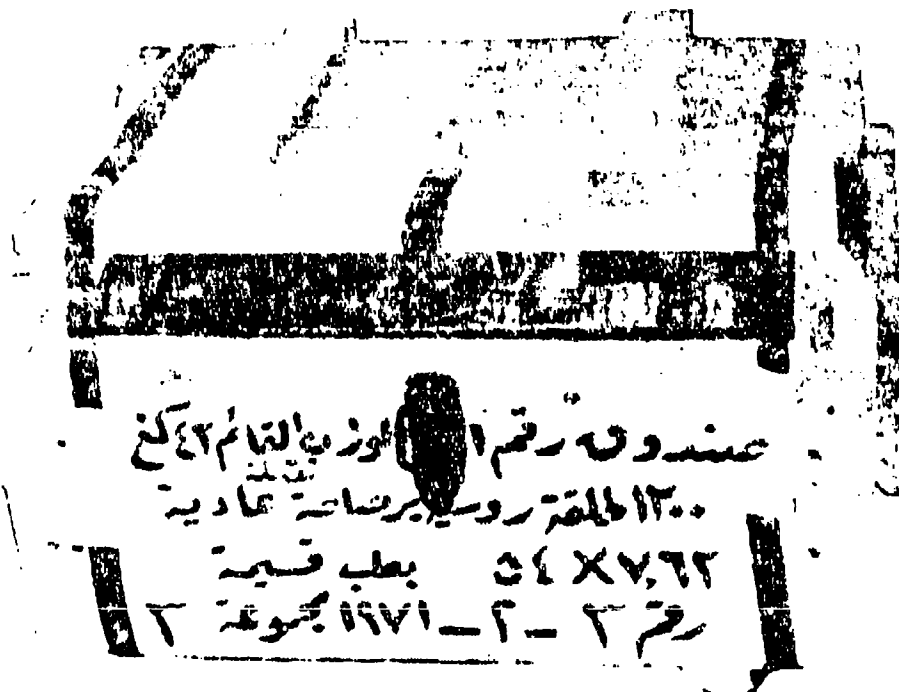 صندوق رقم ١ الوزن القائم ٤٣ كغ
ثقيلة
١٣٠٠ طلقة روسية برصاصة عادية
٧,٦٢ X ٥٤ بعلب قسيمة
رقم ٢ – ٣ – ١٩٧١ مجموعة ٢